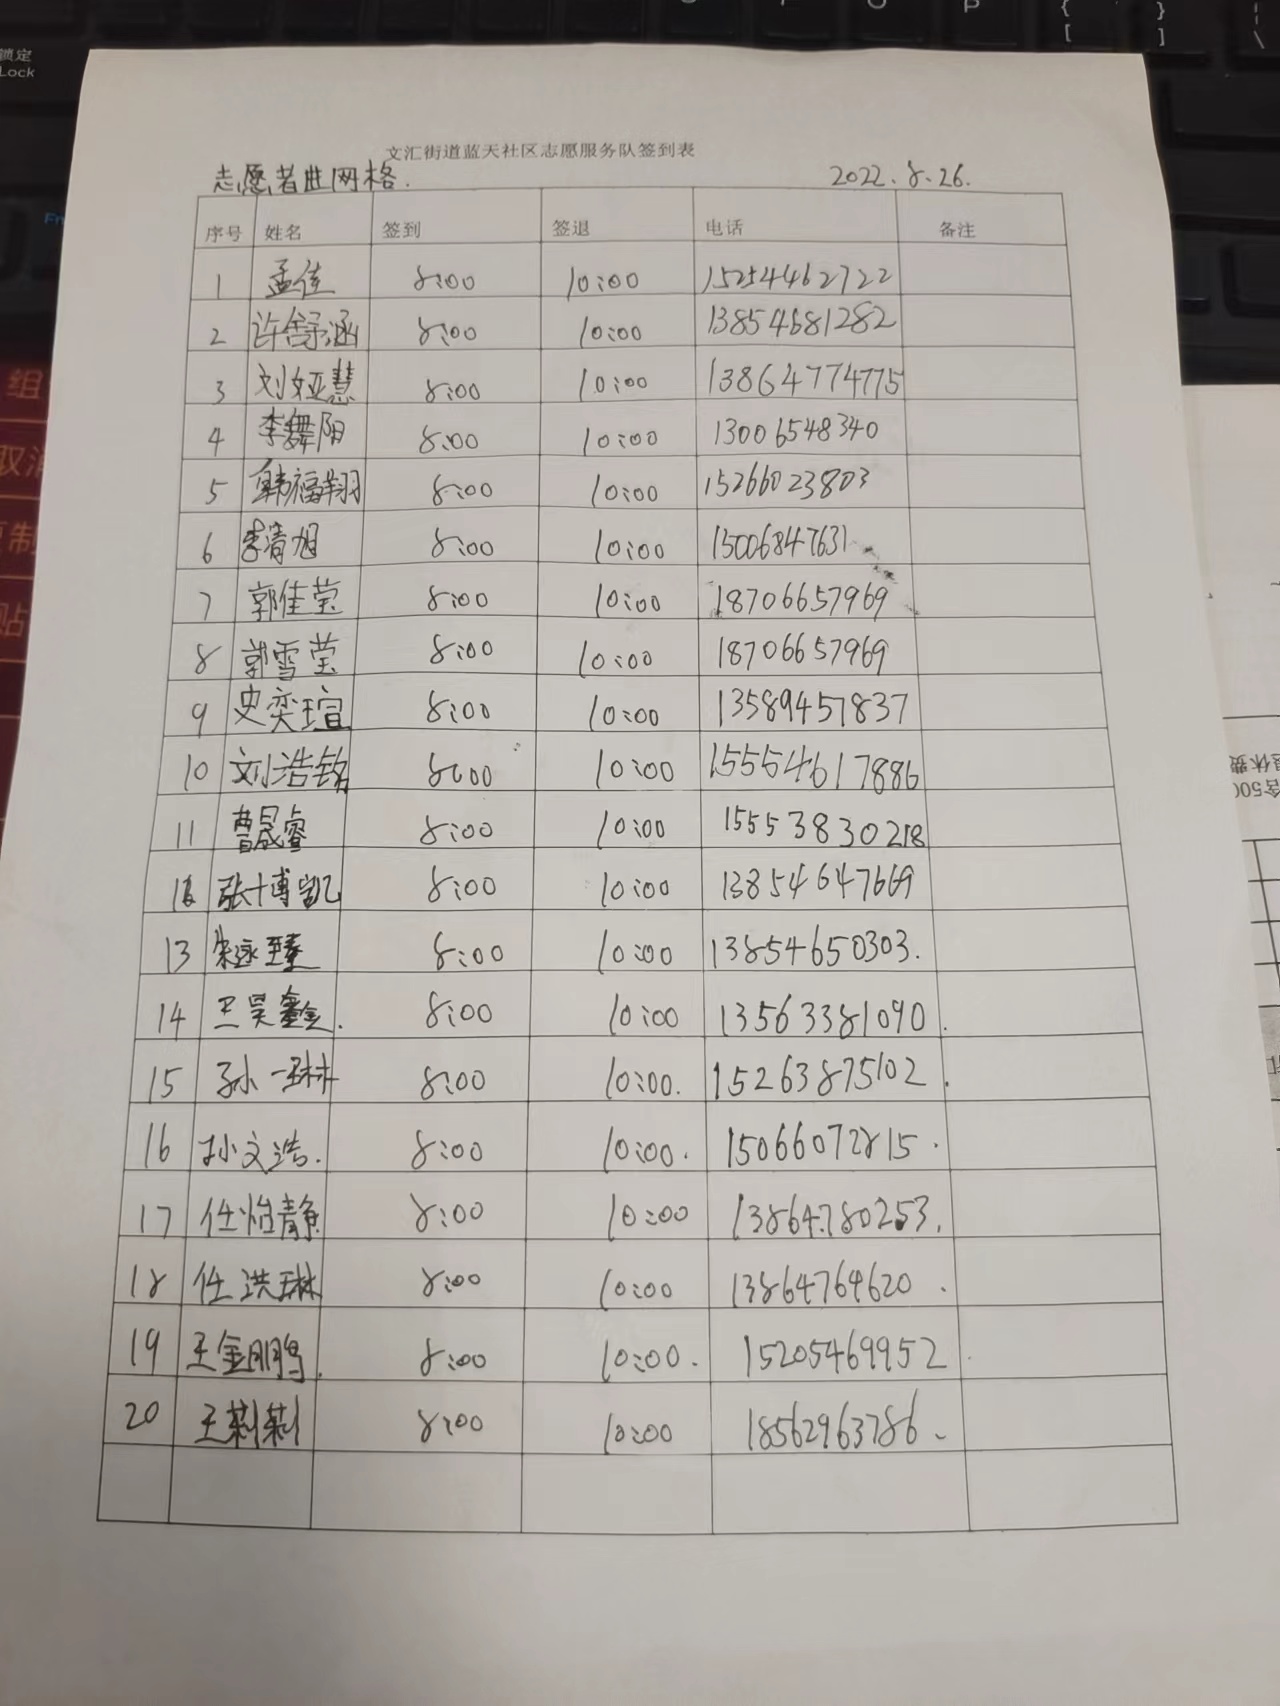 锁定
Lock
文汇街道蓝天社区志愿服务队签到表
志愿者进网格.
2022.8.26.
序号 姓名 签到 签退 电话 备注
1 孟佳 8:00 10:00 15254462722
2 许舒涵 8:00 10:00 13854681282
3 刘娅慧 8:00 10:00 13864774775
4 李舞阳 8:00 10:00 13006548340
5 韩福翔 8:00 10:00 15266023803
6 李清旭 8:00 10:00 15006847631
7 郭佳莹 8:00 10:00 18706657969
8 郭雪莹 8:00 10:00 18706657969
9 史奕瑄 8:00 10:00 13589457837
10 刘浩铭 8:00 10:00 15554617886
11 曹晟睿 8:00 10:00 15553830218
12 张博凯 8:00 10:00 13854647669
13 朱泳臻 8:00 10:00 13854650303.
14 王昊鑫. 8:00 10:00 13563381090.
15 孙一琳 8:00 10:00. 15263875102.
16 孙文浩. 8:00 10:00. 15066072815.
17 任怡静 8:00 10:00 13864780253.
18 任洪琳 8:00 10:00 13864764620.
19 王金鹏. 8:00 10:00. 15205469952.
20 王莉莉 8:00 10:00 18562963786.